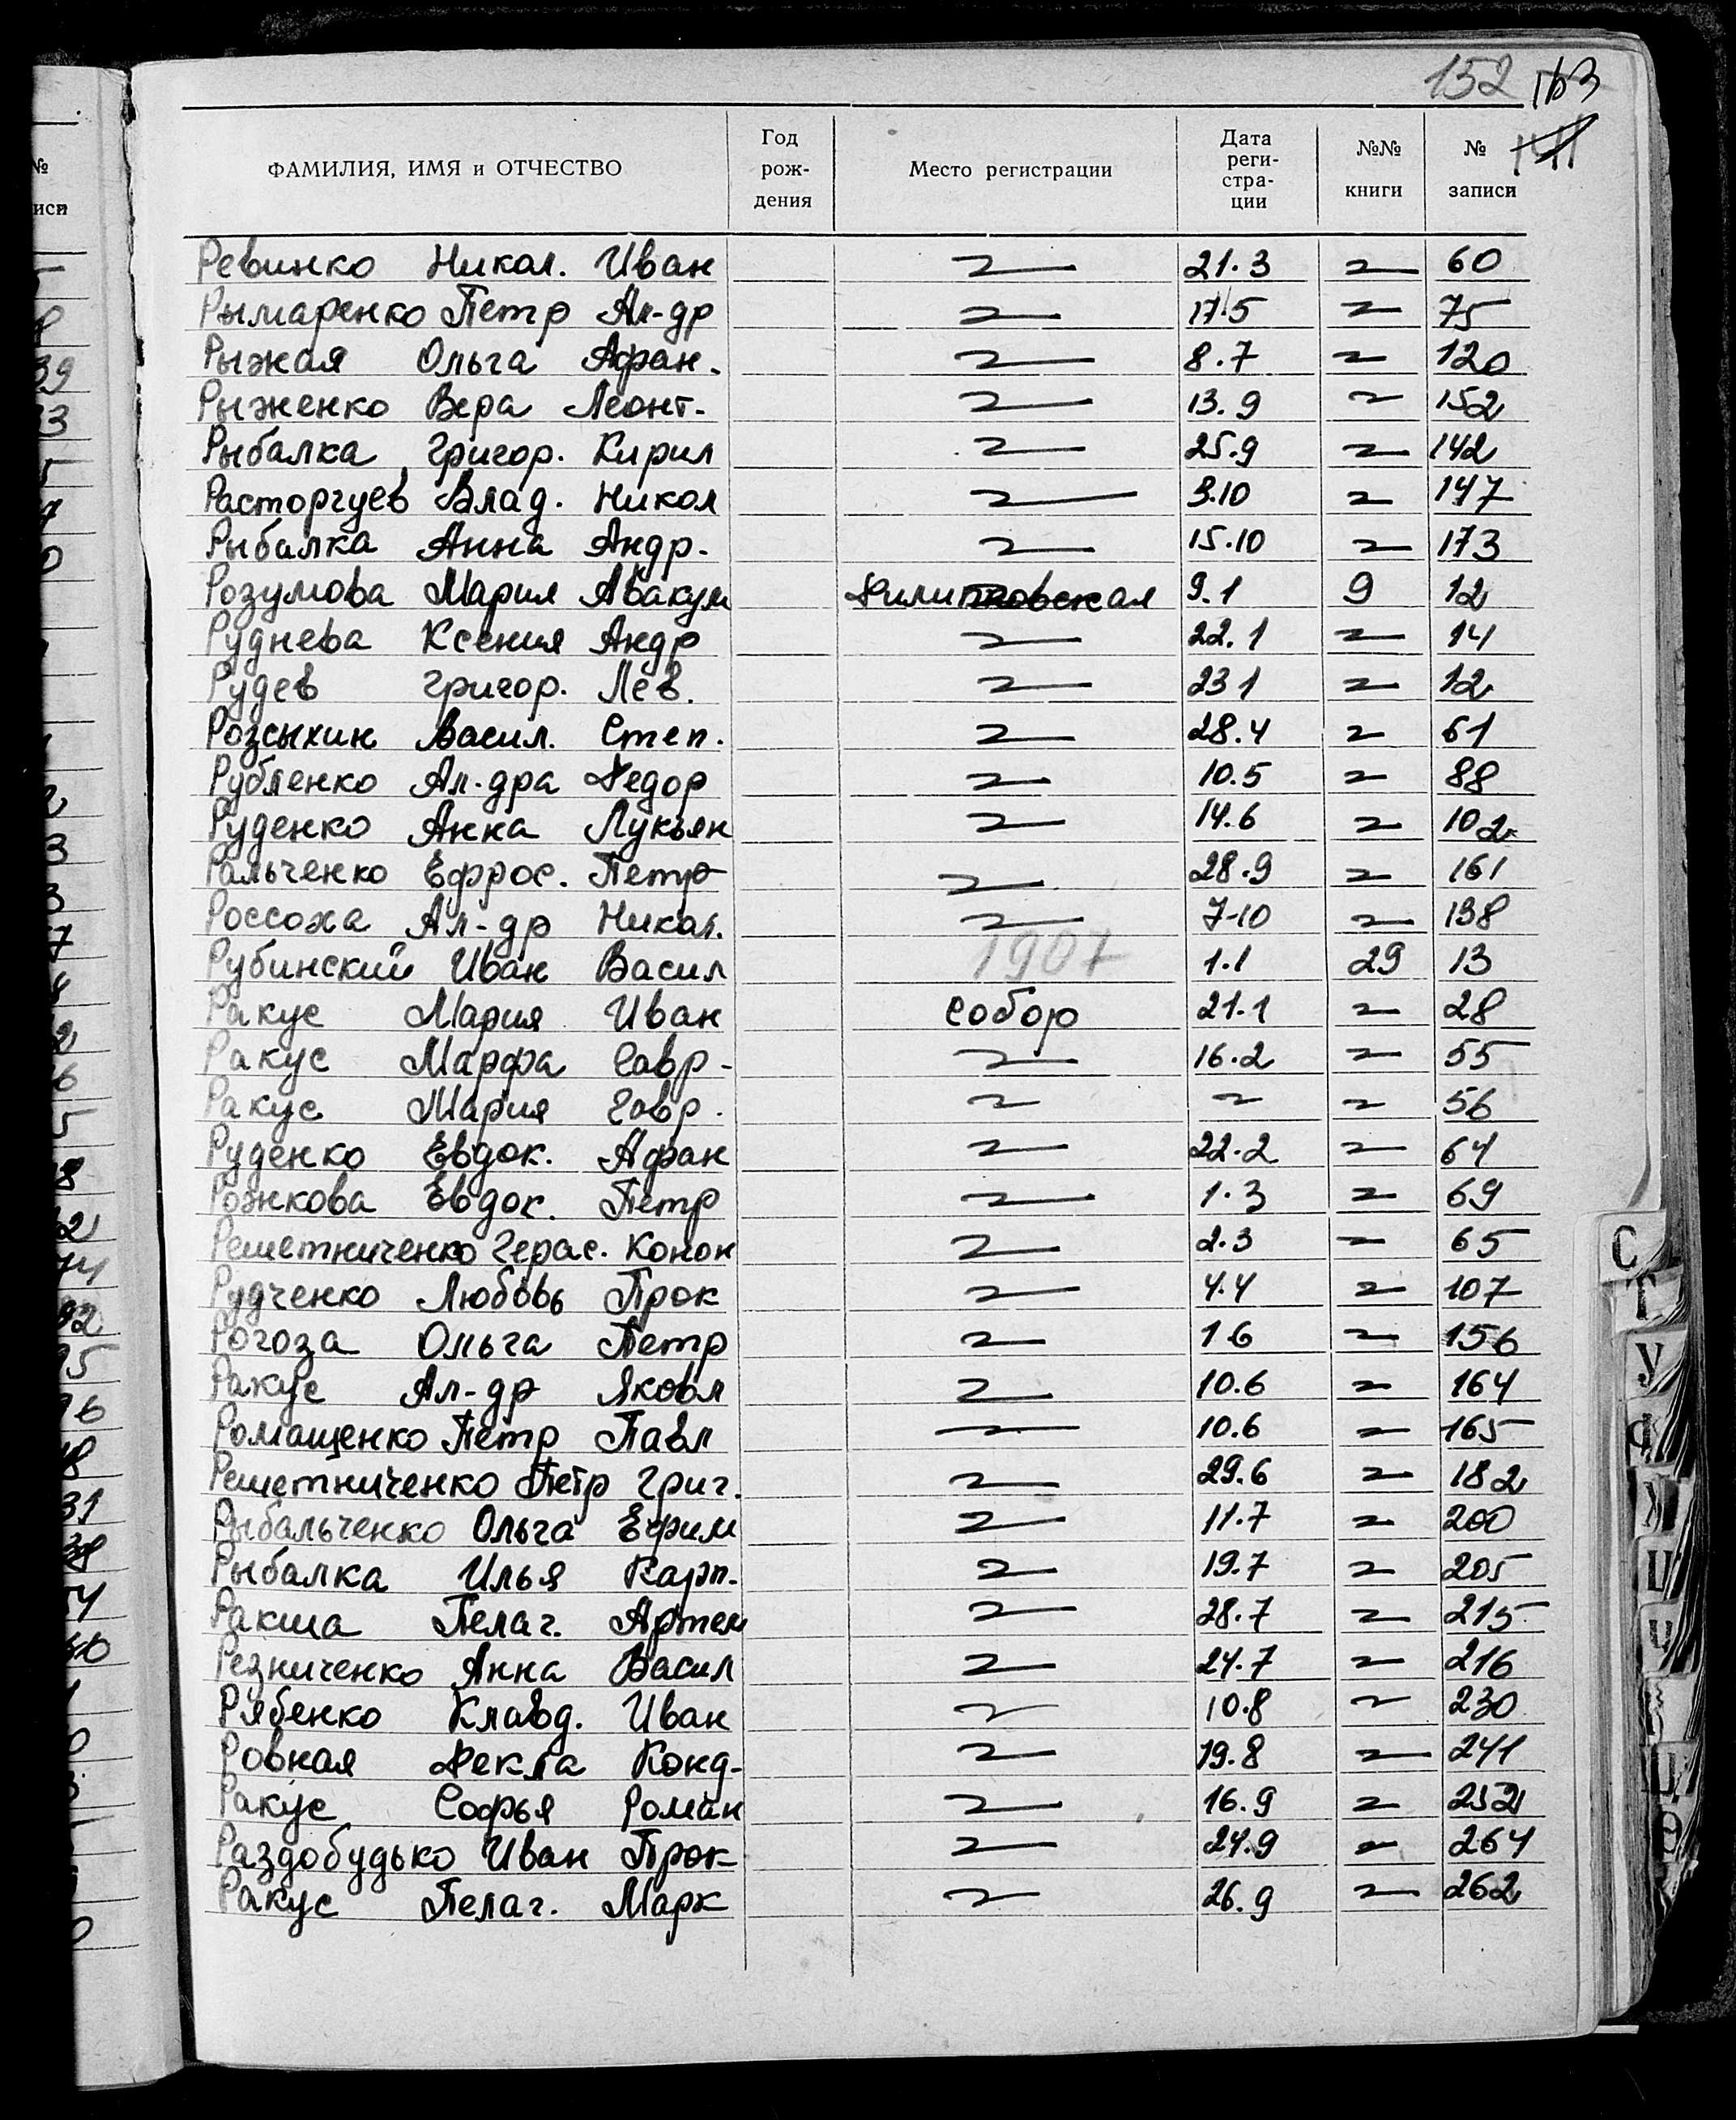 152 163
141
ФАМИЛИЯ, ИМЯ и ОТЧЕСТВО Год рождения Место регистрации Дата регистрации №№ книги № записи
Ревинко Никол. Иван 〃 21.3 〃 60
Рымаренко Петр Ал-др 〃 17.5 〃 75
Рыжая Ольга Афан. 〃 8.7 〃 120
Рыженко Вера Леонт. 〃 13.9 〃 152
Рыбалка Григор. Кирил 〃 25.9 〃 142
Расторгуев Влад. Никол 〃 3.10 〃 147
Рыбалка Анна Андр. 〃 15.10 〃 173
Розумова Мария Авакум 9.1 9 12
Руднева Ксения Андр 〃 22.1 〃 14
Рудев Григор. Лев. 〃 23 1 〃 12
Розсыхин Васил. Степ. 〃 28.4 〃 61
Рубленко Ал-дра Федор 〃 10.5 〃 88
Руденко Анна Лукьян 〃 14.6 〃 102
Ральченко Ефрос. Петр 〃 28.9 〃 161
Россоха Ал-др Никол. 〃 7-10 〃 138
Рубинский Иван Васил 1907 1.1 29 13
Ракус Мария Иван собор 21.1 〃 28
Ракус Марфа Гавр- 〃 16.2 〃 55
Ракус Мария Гавр. 〃 〃 〃 56
Руденко Евдок. Афан 〃 22.2 〃 64
Рожкова Евдок. Петр 〃 1.3 〃 69
Решетниченко Герас. Конон 〃 2.3 〃 65
Рудченко Любовь Прок 〃 4.4 〃 107
Рогоза Ольга Петр 〃 1 6 〃 156
Ракус Ал-др Яковл 〃 10.6 〃 164
Ромащенко Петр Павл 〃 10.6 〃 165
Решетниченко Петр Григ. 〃 29.6 〃 182
Рыбальченко Ольга Ефим 〃 11.7 〃 200
Рыбалка Илья Карп. 〃 19.7 〃 205
Ракша Пелаг. Артем 〃 28.7 〃 215
Резниченко Анна Васил 〃 24.7 〃 216
Рябенко Клавд. Иван 〃 10.8 〃 230
Ровная Фекла Конд- 〃 19.8 〃 241
Ракус Софья Роман 〃 16.9 〃 252
Раздобудько Иван Прок 〃 24.9 〃 264
Ракус Пелаг. Марк 〃 26.9 〃 262
С
Т
У